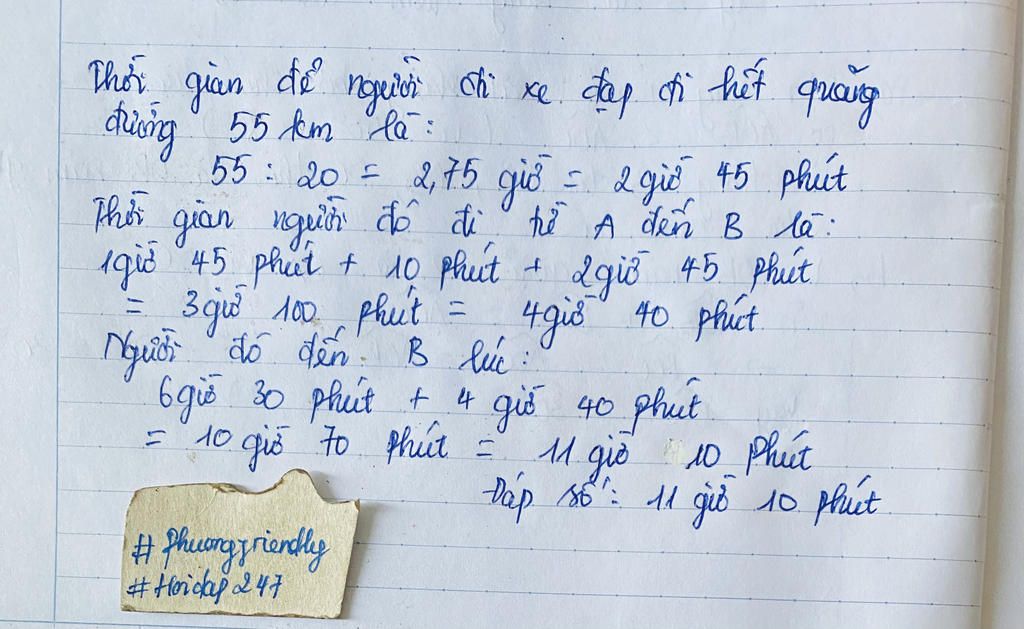 Thời gian để người đi xe đạp đi hết quãng
đường 55 km là:
55 : 20 = 2,75 giờ = 2 giờ 45 phút
Thời gian người đó đi từ A đến B là:
1 giờ 45 phút + 10 phút + 2 giờ 45 phút
= 3 giờ 100 phút = 4 giờ 40 phút
Người đó đến B lúc:
6 giờ 30 phút + 4 giờ 40 phút
= 10 giờ 70 phút = 11 giờ 10 phút
Đáp số: 11 giờ 10 phút
# Phuongfriendly
# Hoidap247